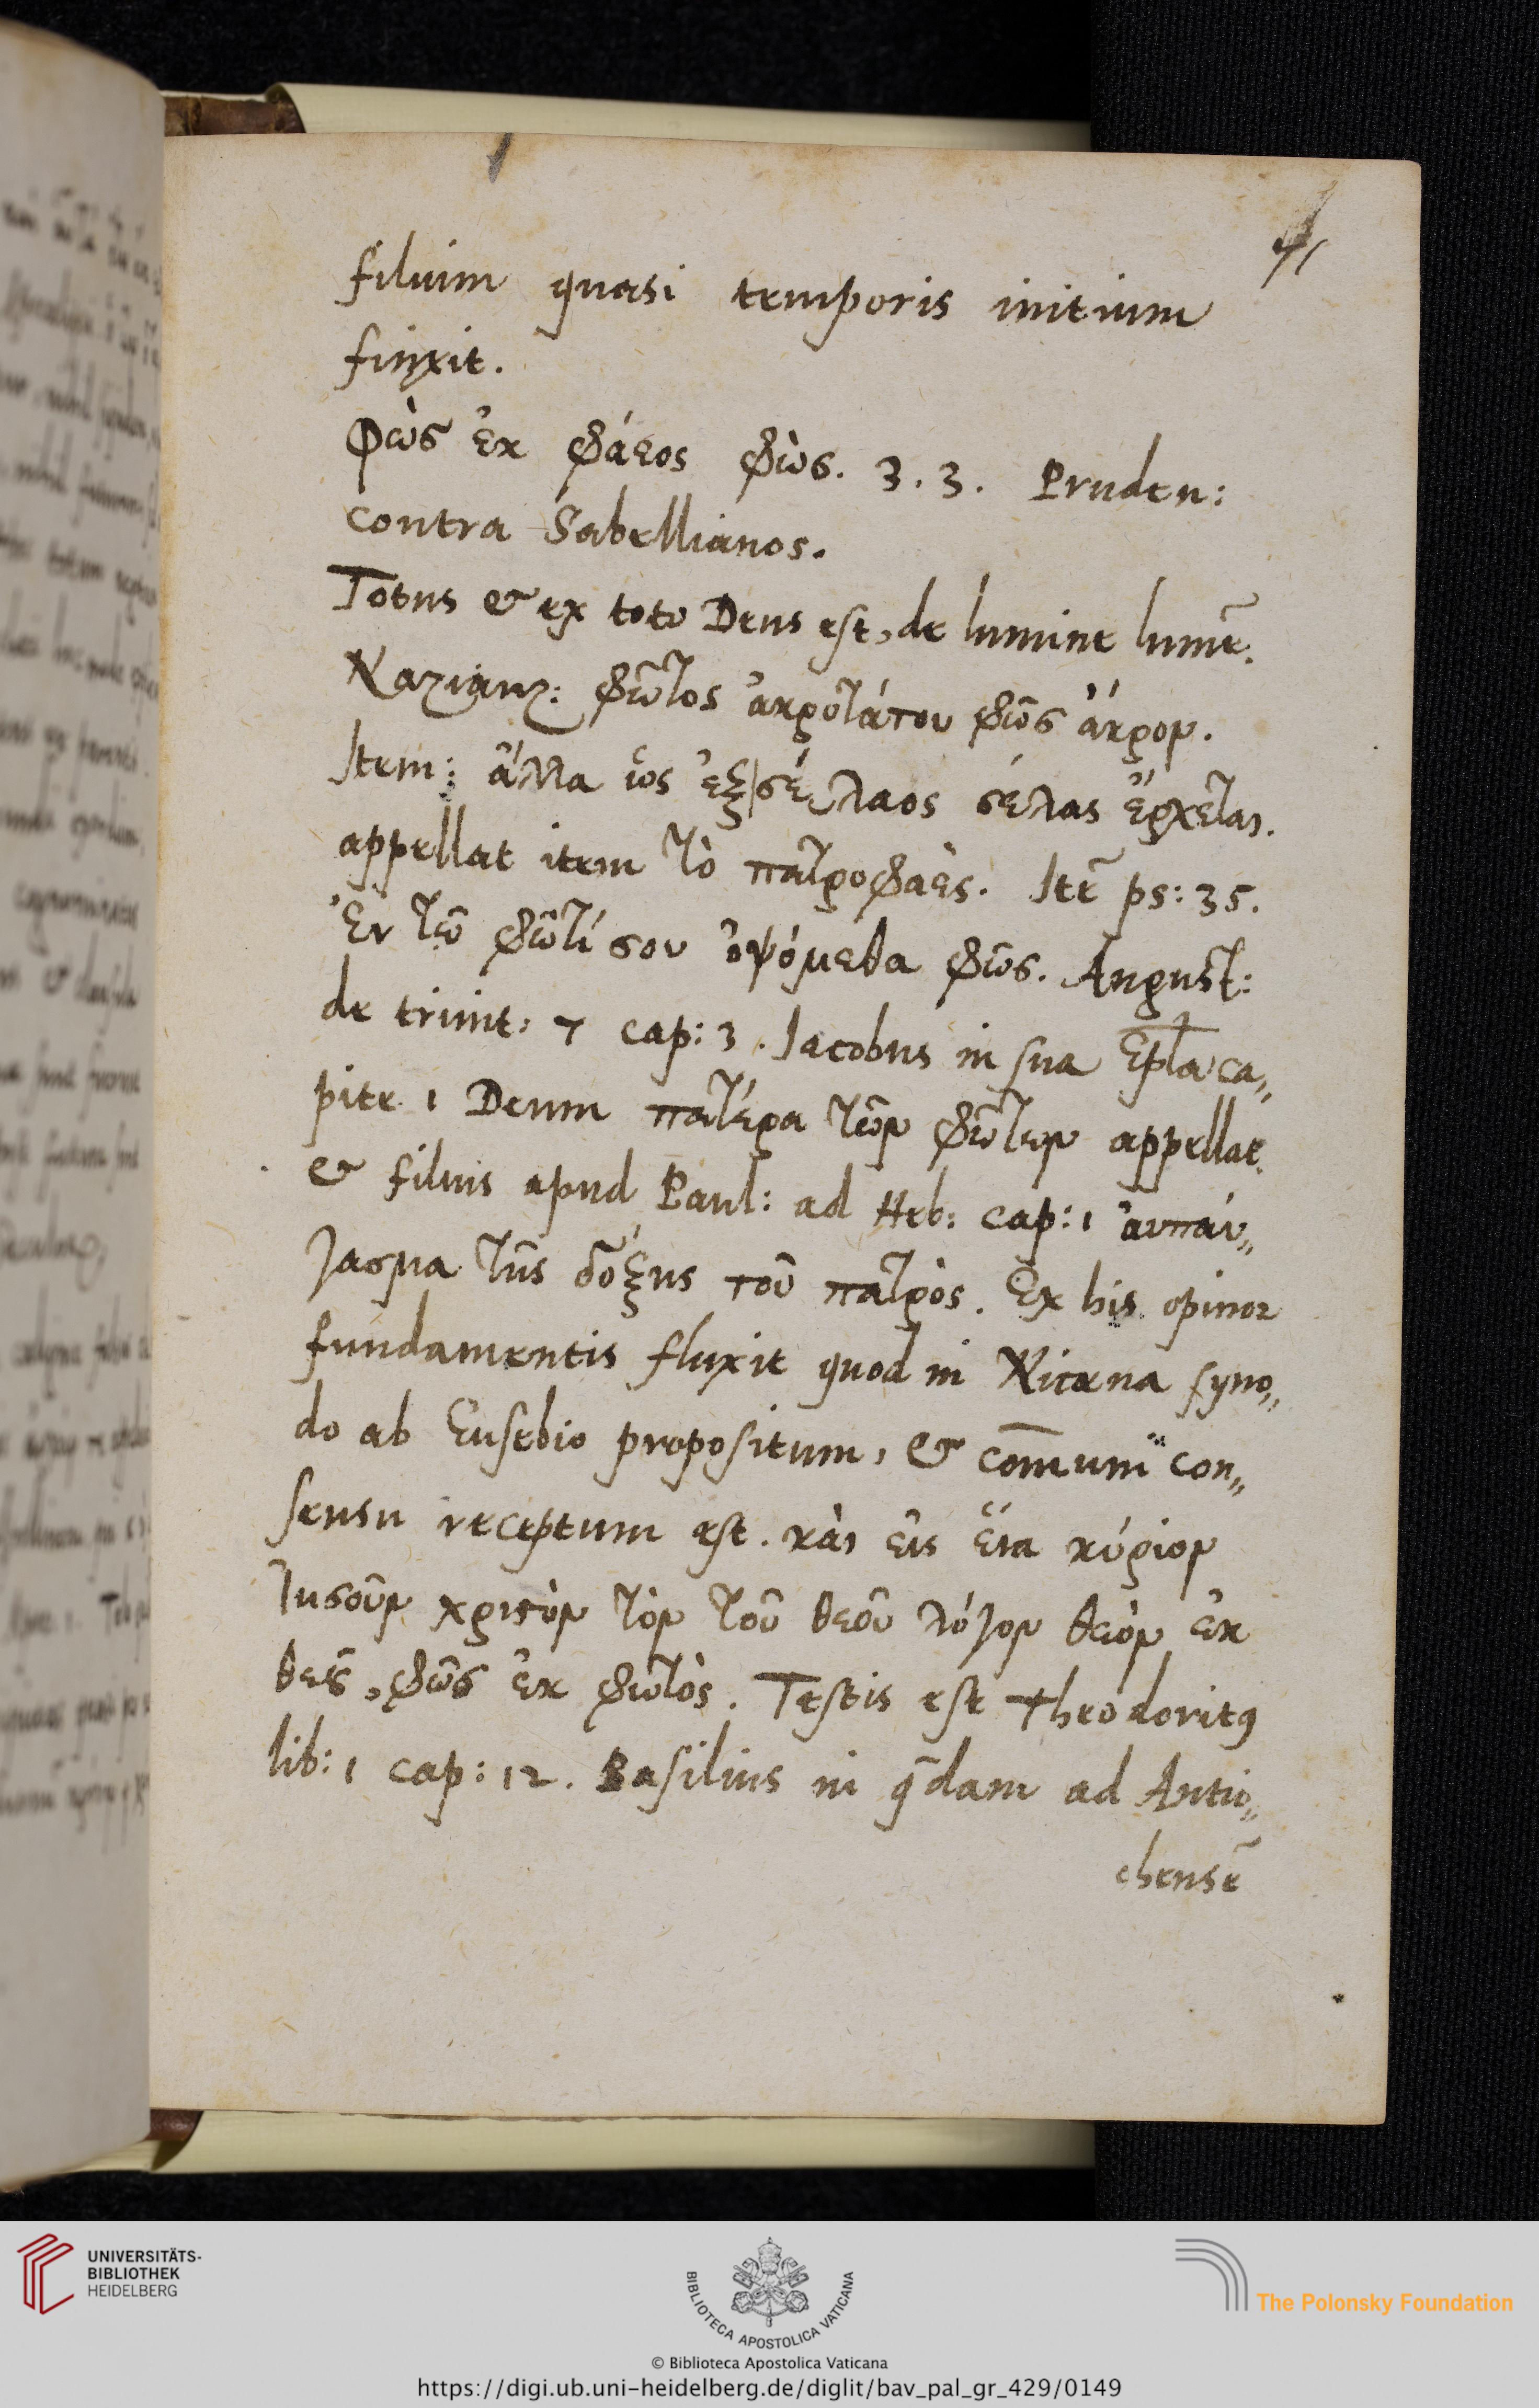 41
filium quasi temporis initium
finxit.
Φὼς ἐκ φάεος φὼς. 3. 3. Pruden:
contra Sabellianos.
Totus & ex toto Deus est, de lumine lumē.
Nazianz: φῶτος ἀκροτάτου φῶς ἄκρον.
Item: ἄλλα ὡς ἐξ σέλαος σέλας ἔρχεται.
appellat item τὸ πατροφαὲς. Itē ps: 35.
Ἐν τῶ φῶτί σου ὀψόμεθα φῶς. August:
de trinit: 7 cap: 3. Iacobus in sua Epla ca„
pite 1 Deum πατέρα τῶν φῶτων appellat.
& filius apud Paul: ad Heb: cap: 1 ἀυπάυ„
γασμα τῆς δόξης τοῦ πατρὸς. Ex his opinor
fundamentis fluxit quod in Nicæna syno„
do ab Eusebio propositum, & com̄uni con„
sensu receptum est. κὰι εἰς ἕνα κύριον
Ἰησοῦν χριϛὸν τὸν τοῦ θεοῦ λόγον θεὸν ἐκ
θεȣ͂, φῶς ἐκ φωτὸς. Testis est Theodoritꝰ
lib: 1 cap: 12. Basilius in q̄dam ad Antio„
chensē
UNIVERSITÄTS-
BIBLIOTHEK
HEIDELBERG
BIBLIOTECA APOSTOLICA VATICANA
The Polonsky Foundation
© Biblioteca Apostolica Vaticana
https://digi.ub.uni-heidelberg.de/diglit/bav_pal_gr_429/0149